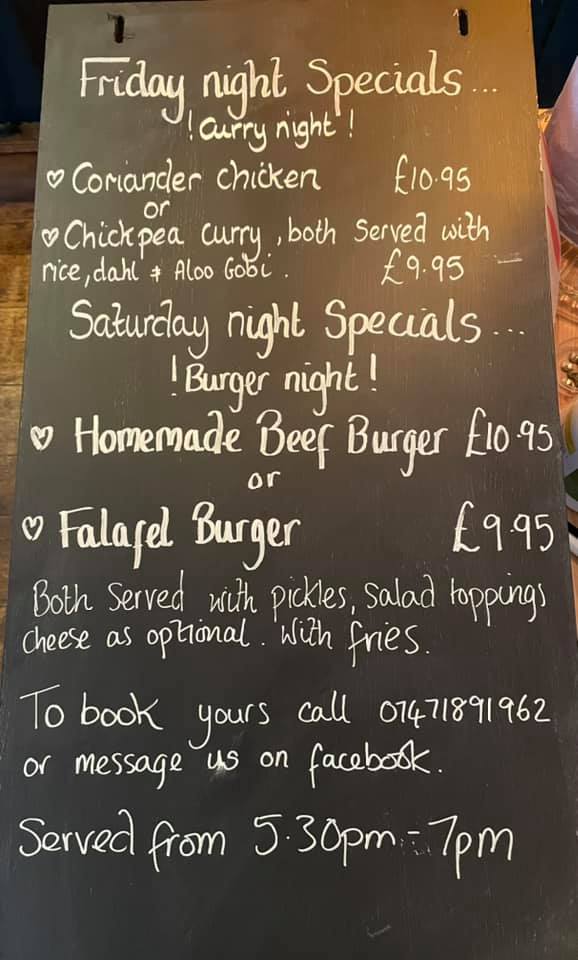 Friday night Specials...
! Curry night !
♡ Coriander chicken £10.95
or
♡ Chickpea curry, both Served with
rice, dahl & Aloo Gobi. £9.95
Saturday night Specials...
! Burger night !
♡ Homemade Beef Burger £10.95
or
♡ Falafel Burger £9.95
Both Served with pickles, Salad toppings
Cheese as optional. With fries.
To book yours call 07471891962
or message us on facebook.
Served from 5.30pm - 7pm